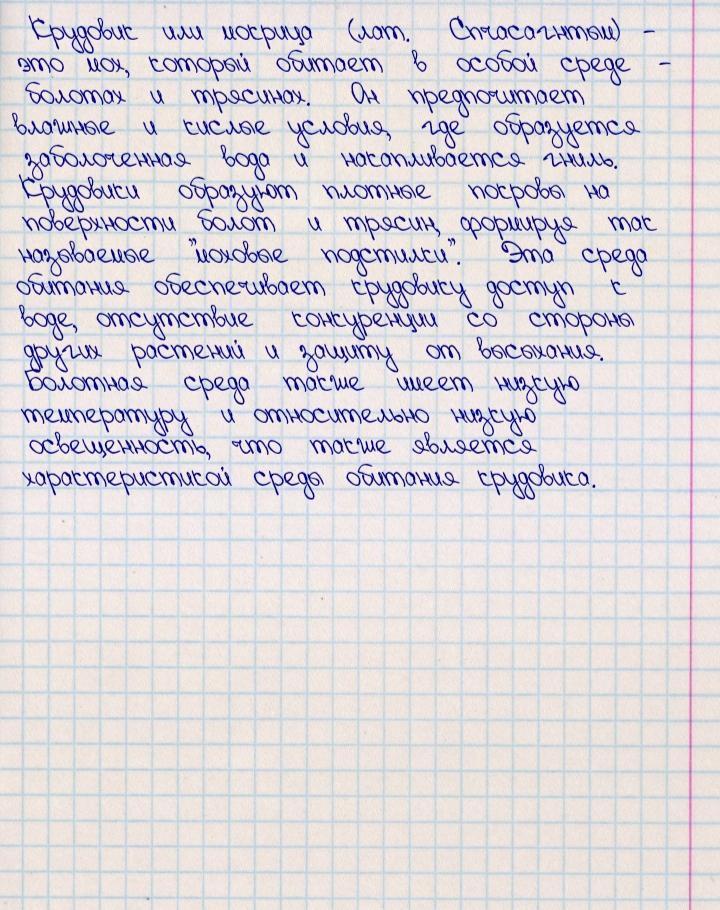 Крудовик или мокрица (лат. Спчасагнтым) -
это мох, который обитает в особой среде -
болотах и трясинах. Он предпочитает
влажные и кислые условия, где образуется
заболоченная вода и накапливается гниль.
Крудовики образуют плотные покровы на
поверхности болот и трясин, формируя так
называемые "моховые подстилки". Эта среда
обитания обеспечивает крудовику доступ к
воде, отсутствие конкуренции со стороны
других растений и защиту от высыхания.
Болотная среда также имеет низкую
температуру и относительно низкую
освещенность, что также является
характеристикой среды обитания крудовика.